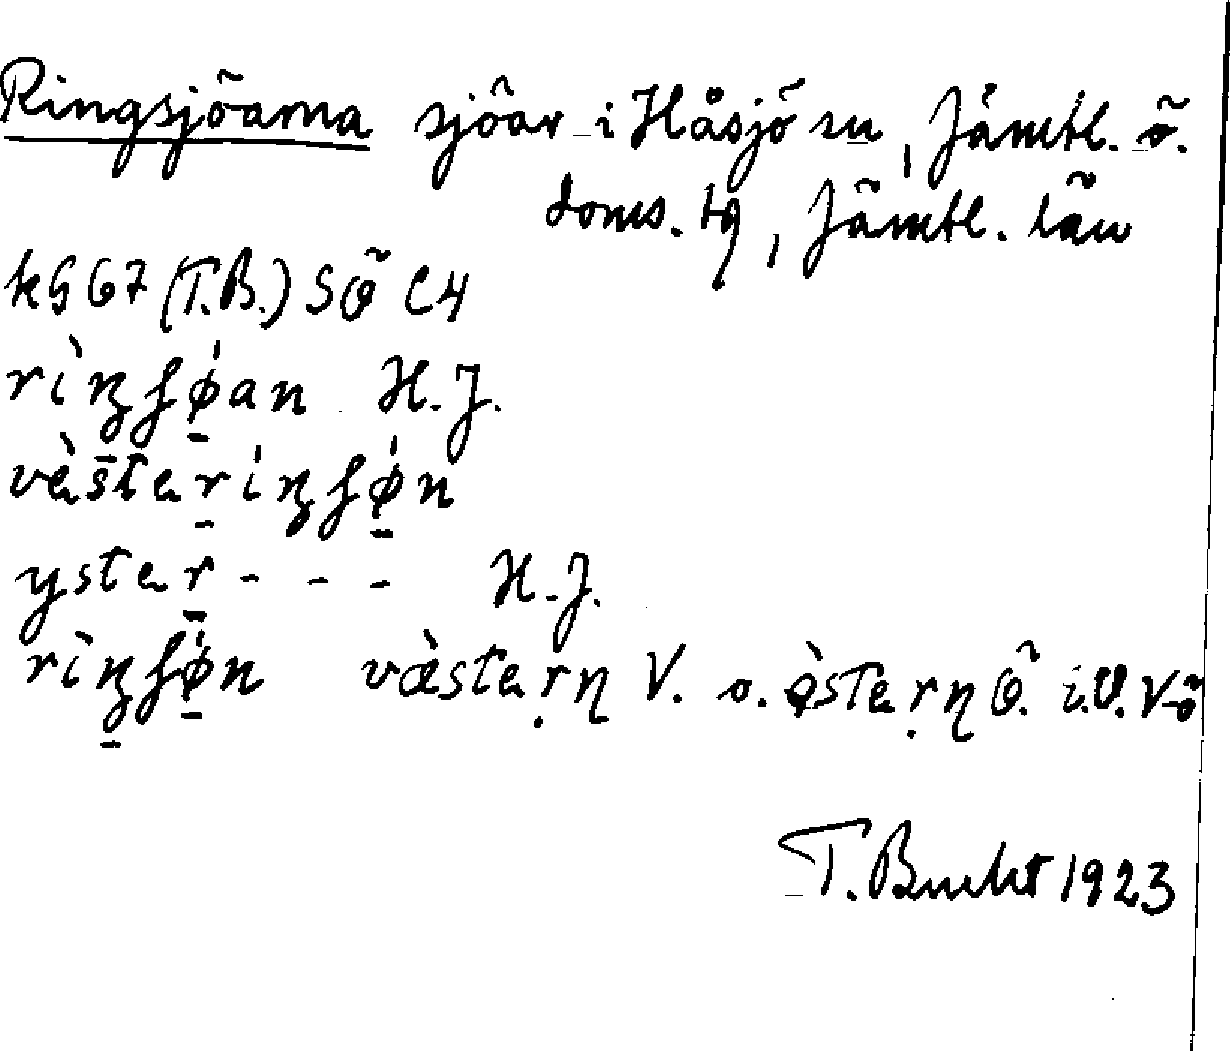 Ringsjöarna sjöar i Håsjö sn, Jämtl. ö.
doms. tg, Jämtl. län
kG 67 (T.B.) SÖ C4
rìŋʃǿ̠an H.J.
vàs̄tar̠íŋʃǿ̠n
ystar̠ - - - H.J.
rìŋ̠ʃǿ̠n væ̀staṛn V. o. ø̀staṛn Ö. i.V. Vö
T. Bucht 1923